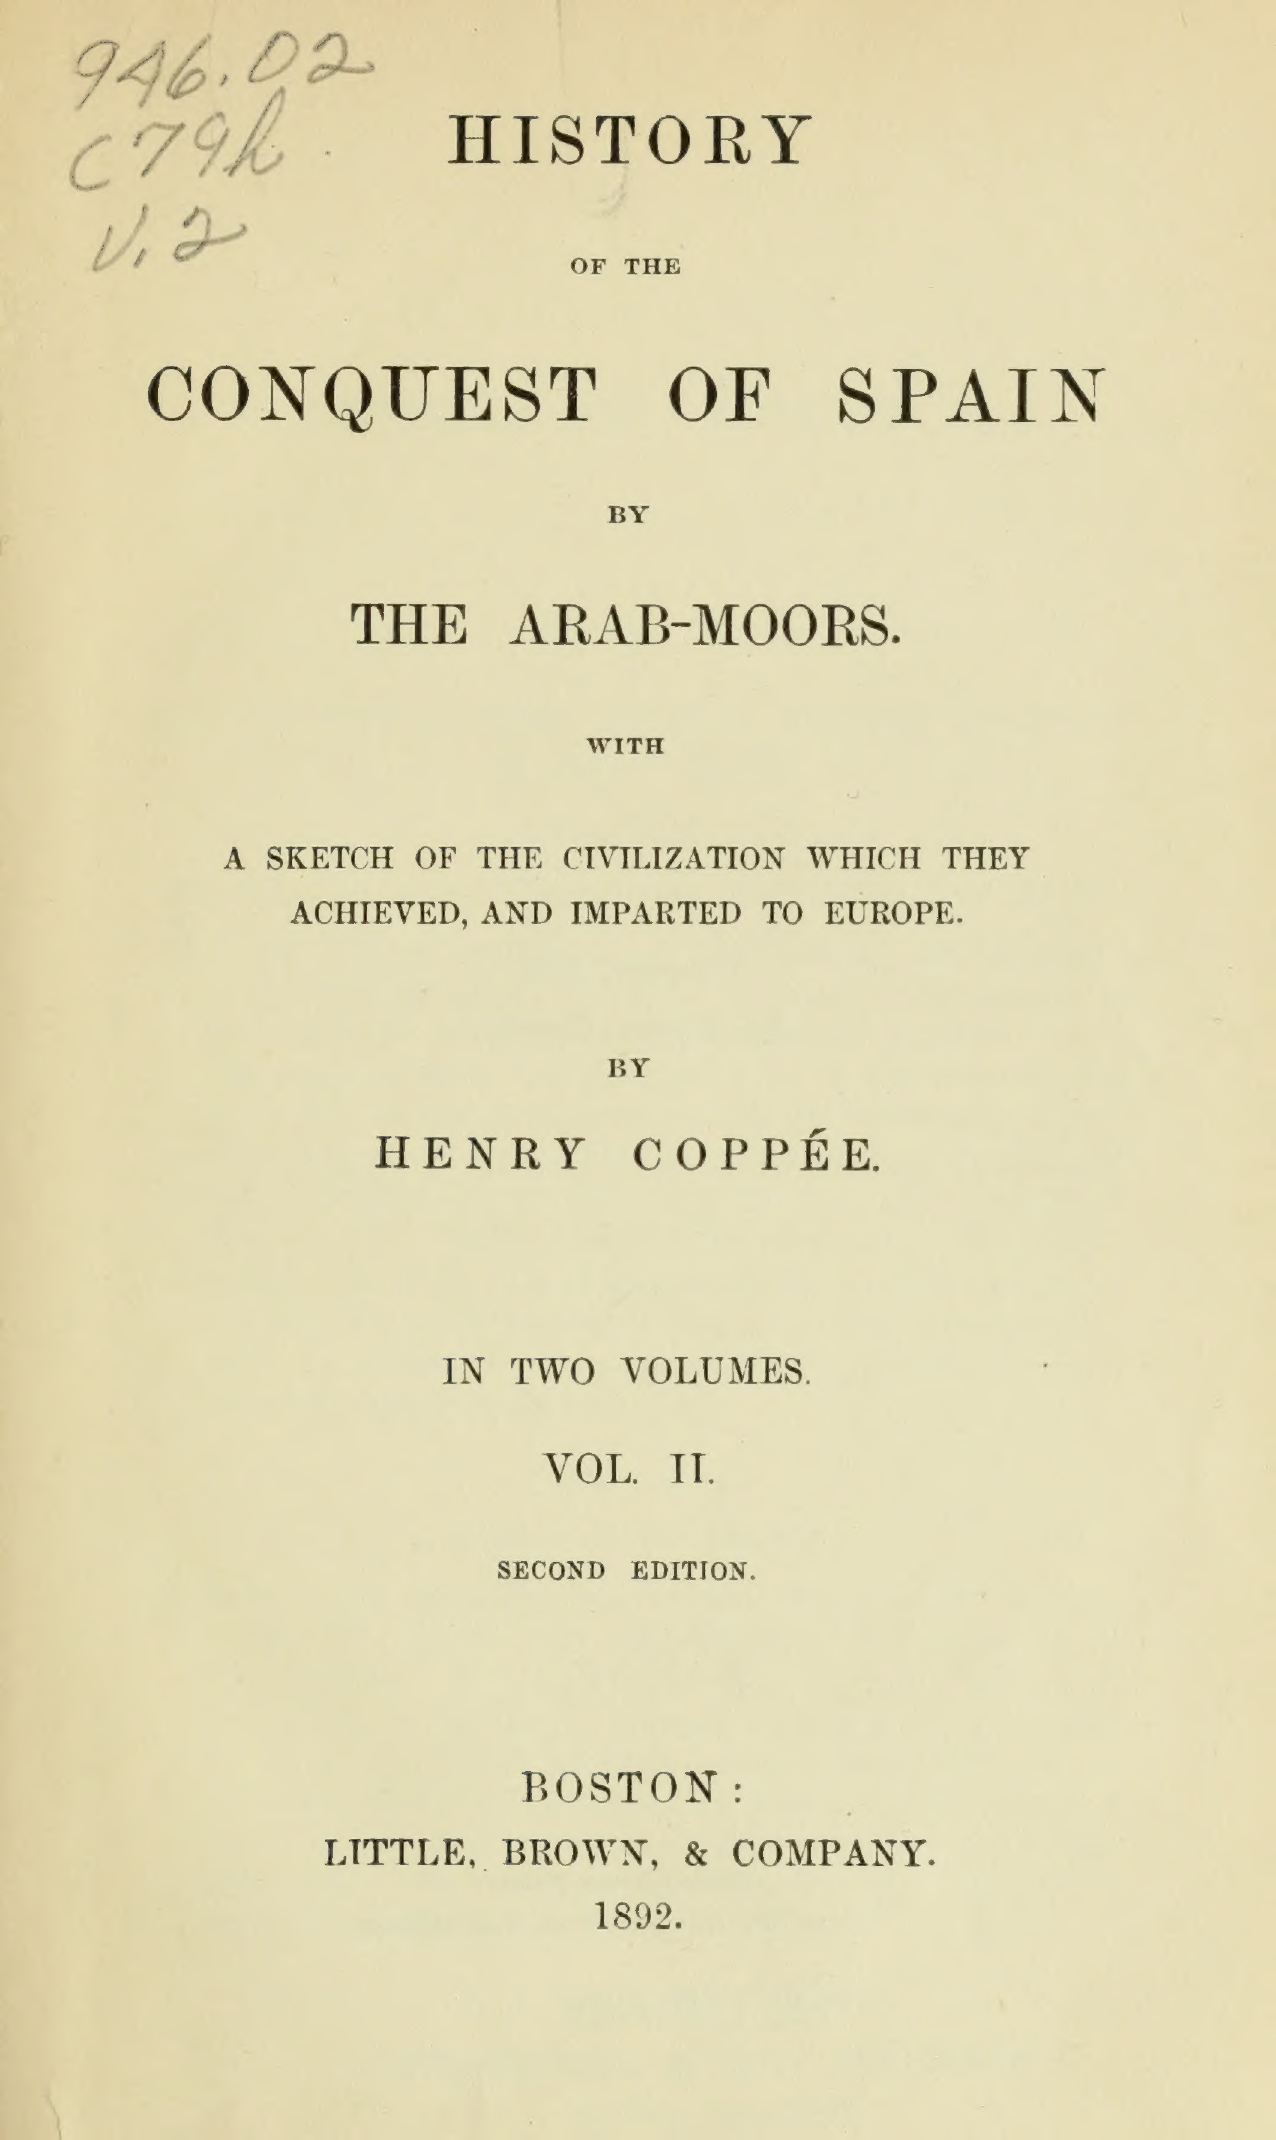 946.02
C79h
v.2
HISTORY
OF THE
CONQUEST OF SPAIN
BY
THE ARAB-MOORS.
WITH
A SKETCH OF THE CIVILIZATION WHICH THEY
ACHIEVED, AND IMPARTED TO EUROPE.
BY
HENRY COPPÉE.
IN TWO VOLUMES.
VOL. II.
SECOND EDITION.
BOSTON:
LITTLE, BROWN, & COMPANY.
1892.